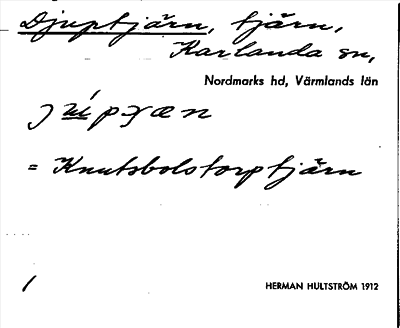 Djuptjärn, tjärn,
Karlanda sn,
Nordmarks hd, Värmlands län
= Knutsbolstorptjärn
/
HERMAN HULTSTRÖM 1912